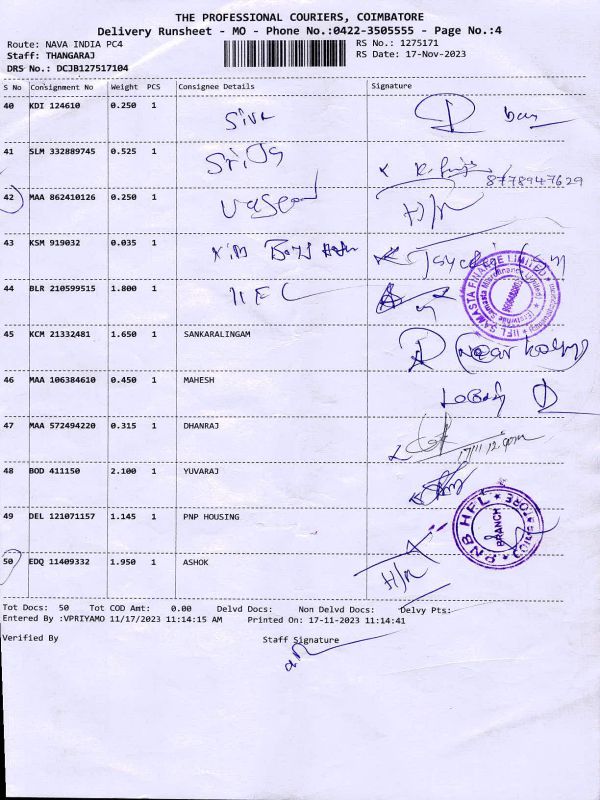 THE PROFESSIONAL COURIERS, COIMBATORE
Delivery Runsheet - MO - Phone No.:0422-3505555 - Page No.:4
Route: NAVA INDIA PC4 RS No.: 1275171
Staff: THANGARAJ RS Date: 17-Nov-2023
DRS No.: DCJB127517104
S No Consignment No Weight PCS Consignee Details Signature
40 KDI 124610 0.250 1 Siva
41 SLM 332889745 0.525 1
8778947629
42 MAA 862410126 0.250 1 H/R
43 KSM 919032 0.035 1
44 BLR 210599515 1.800 1 IIFC
SAMASTA FINANCE LIMITED
45 KCM 21332481 1.650 1 SANKARALINGAM
46 MAA 106384610 0.450 1 MAHESH
47 MAA 572494220 0.315 1 DHANRAJ
17/11 12.
48 BOD 411150 2.100 1 YUVARAJ
49 DEL 121071157 1.145 1 PNP HOUSING
PNB HFL BRANCH
50 EDQ 11409332 1.950 1 ASHOK
H/R
Tot Docs: 50 Tot COD Amt: 0.00 Delvd Docs: Non Delvd Docs: Delvy Pts:
Entered By :VPRIYAMO 11/17/2023 11:14:15 AM Printed On: 17-11-2023 11:14:41
Verified By Staff Signature